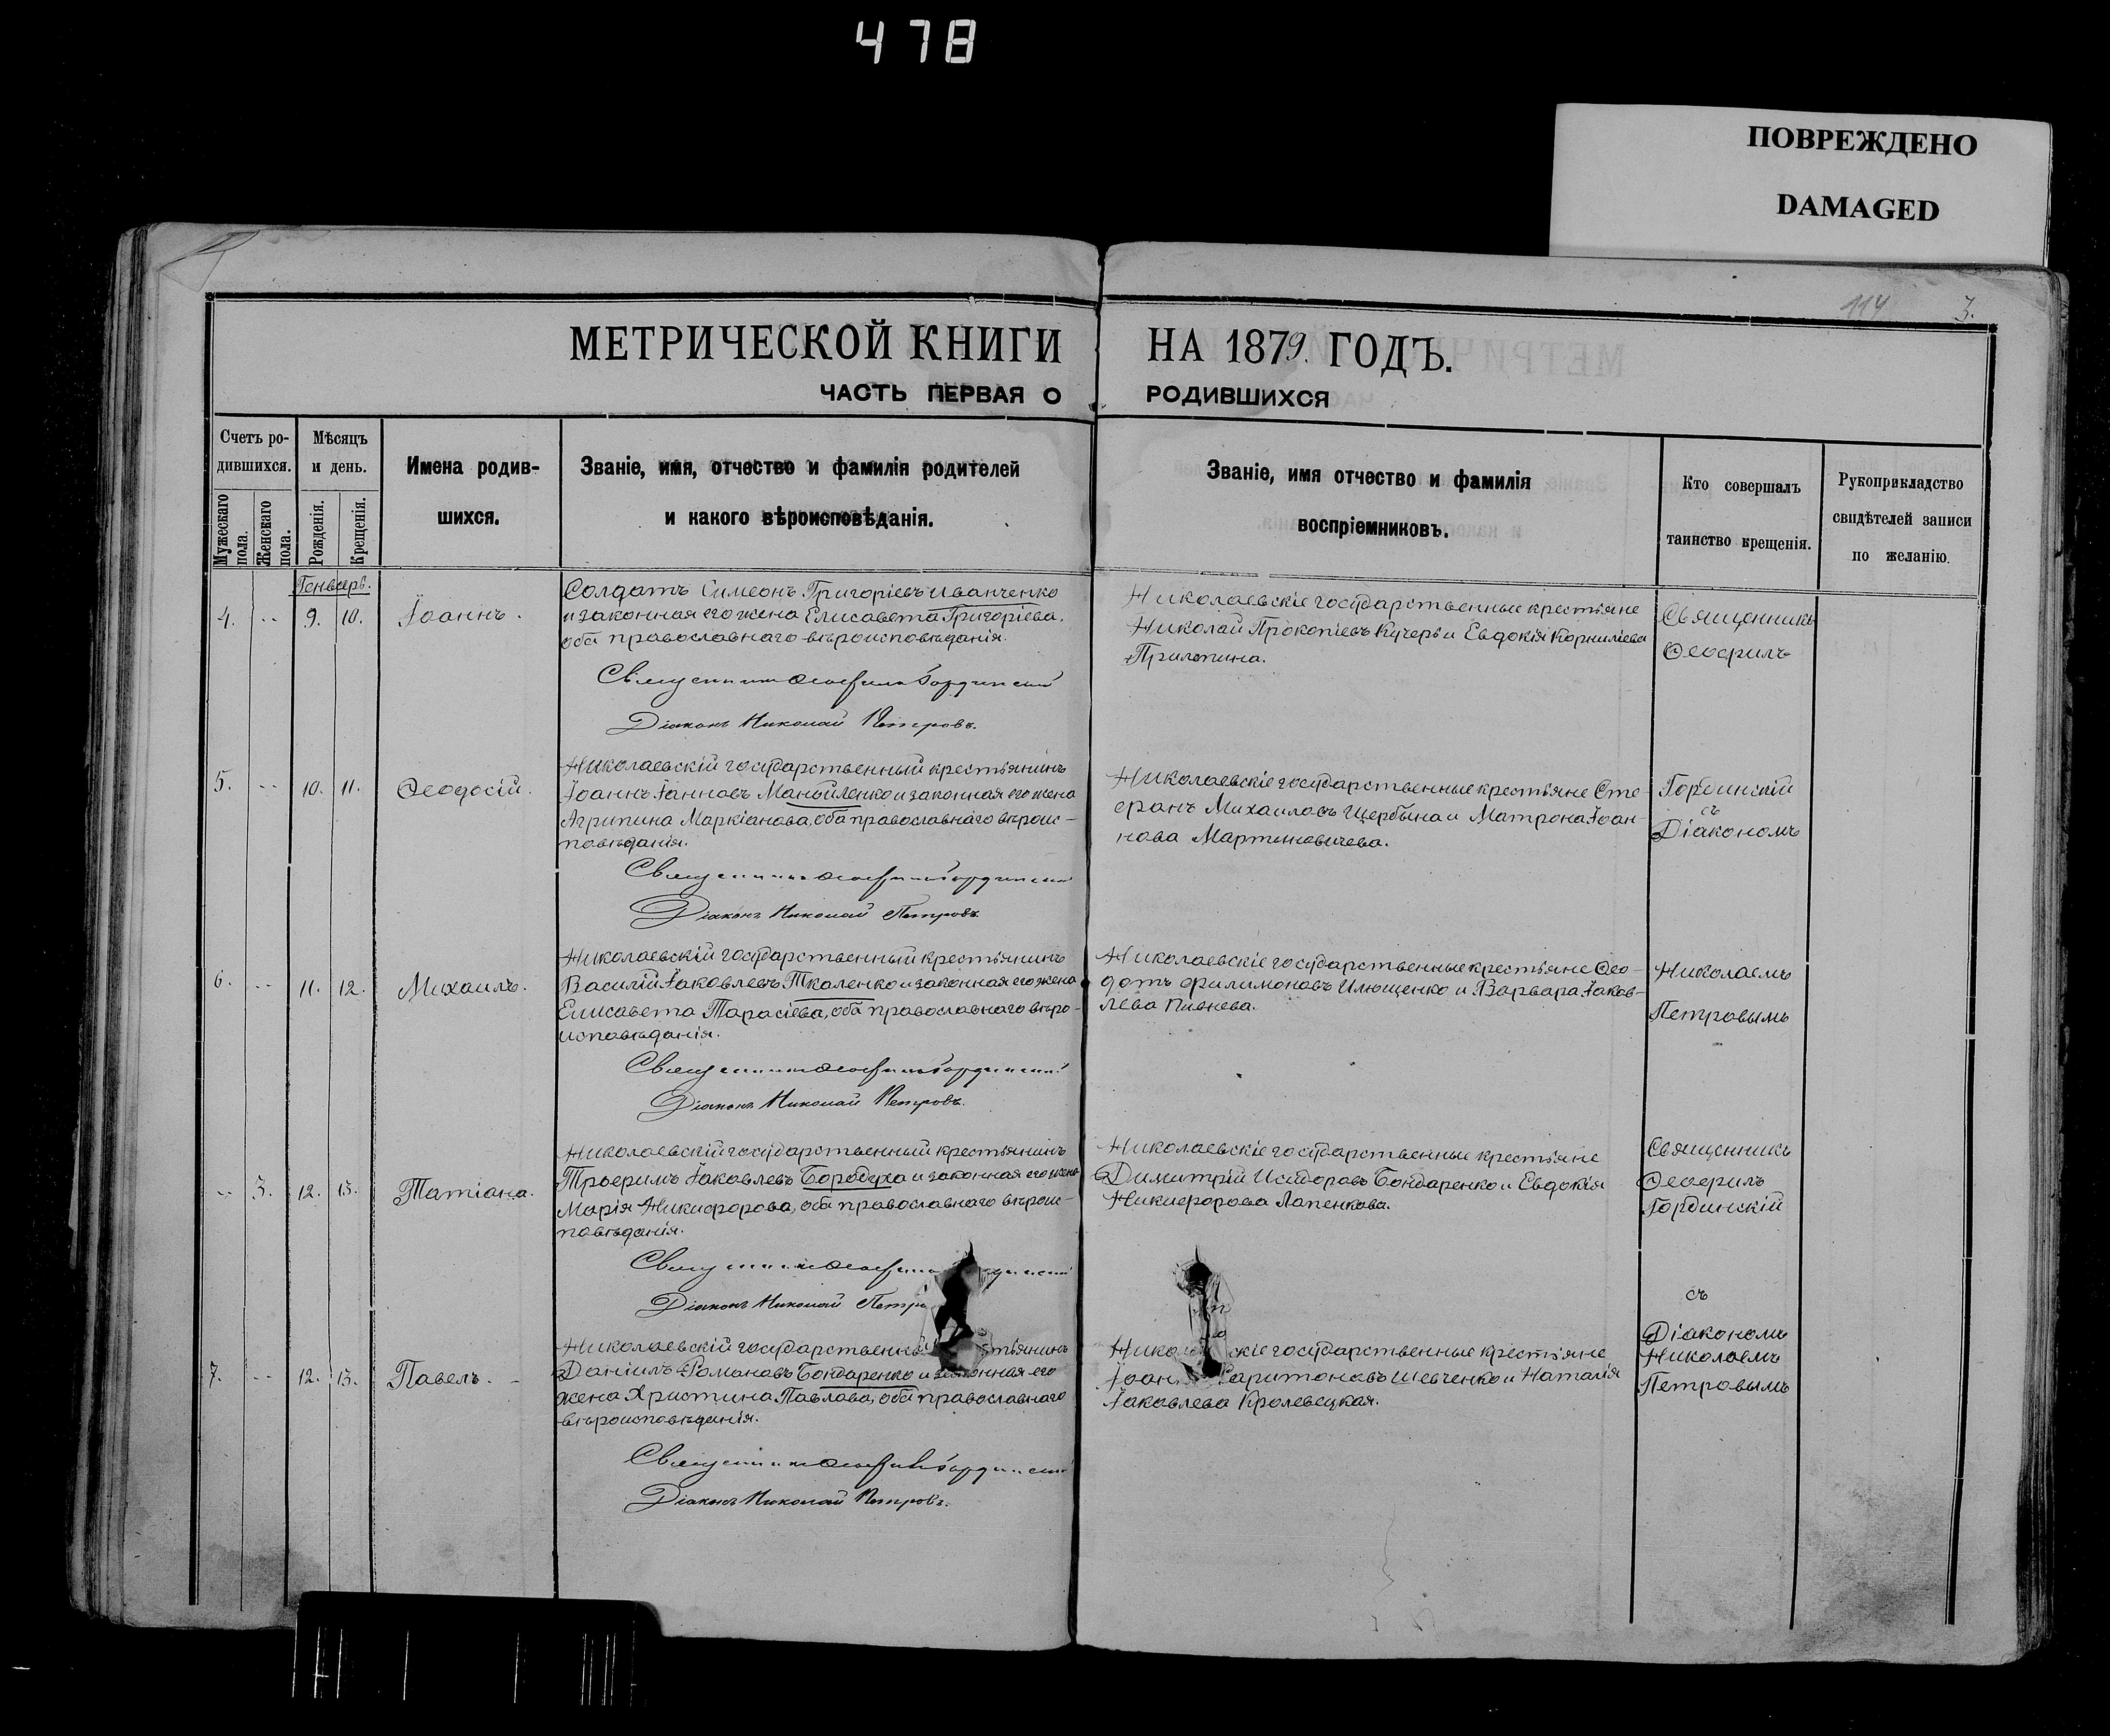 478
ПОВРЕЖДЕНО
DAMAGED
114
3.
МЕТРИЧЕСКОЙ КНИГИ НА 1879. ГОДЪ.
ЧАСТЬ ПЕРВАЯ О РОДИВШИХСЯ
Счетъ ро-
дившихся.
Мужескаго пола.
Женскаго пола.
Мѣсяцъ
и день.
Рожденія.
Крещенія.
Имена родив-
шихся.
Званіе, имя, отчество и фамилія родителей
и какого вѣроисповѣданія.
Званіе, имя отчество и фамилія
воспріемниковъ.
Кто совершалъ
таинство крещенія.
Рукоприкладство
свидѣтелей записи
по желанію.
Генварь.
4. -- 9. 10. Іоаннъ.
Солдатъ Симеонъ Григоріевъ Иванченко
и законная его жена Елисавета Григоріева,
оба православнаго вѣроисповѣданія.
Священникъ Ѳеофилъ Гординскій
Діаконъ Николай Петровъ.
Николаевскіе государственные крестьяне
Николай Прокопіевъ Кучеръ и Евдокія Корниліева
Прилепина.
Священникъ
Ѳеофилъ
5. -- 10. 11. Ѳеодосій.
Николаевскій государственный крестьянинъ
Іоаннъ Іанновъ Манойленко и законная его жена
Агрипина Маркіанова, оба православнаго вѣроис-
повѣданія.
Священникъ Ѳеофилъ Гординскій
Діаконъ Николай Петровъ
Николаевскіе государственные крестьяне Сте-
фанъ Михаиловъ Щербина и Матрона Іоан-
нова Мартыновичева.
Гординскій
съ
Діакономъ
6. -- 11. 12. Михаилъ.
Николаевскій государственный крестьянинъ
Василій Іаковлевъ Ткаленко и законная его жена
Елисавета Тарасіева, оба православнаго вѣро-
исповѣданія.
Священникъ Ѳеофилъ Гординскій
Діаконъ Николай Петровъ.
Николаевскіе государственные крестьяне Ѳео-
дотъ Филимоновъ Илющенко и Варвара Іаков-
лева Пивнева.
Николаемъ
Петровымъ
-- 3. 12. 13. Татіана.
Николаевскій государственный крестьянинъ
Трофимъ Іаковлевъ Бородуха и законная его жена
Марія Никифорова, оба православнаго вѣроис-
повѣданія.
Священникъ Ѳеофилъ
Діаконъ Николай
Николаевскіе государственные крестьяне
Димитрій Исидоровъ Бондаренко и Евдокія
Никифорова Лапенкова.
Священникъ
Ѳеофилъ
Гординскій
съ
Діакономъ
Николаемъ
Петровымъ
7. -- 12. 13. Павелъ. -
Николаевскій государственны стьянинъ
Даніилъ Романовъ Бондаренко и законная его
жена Христина Павлова, оба православнаго
вѣроисповѣданія.
Священникъ Ѳеофилъ Гординскій
Діаконъ Николай Петровъ.
Никол скіе государственные крестьяне
Іоан Харитоновъ Шевченко и Наталія
Іаковлева Кролевецкая.